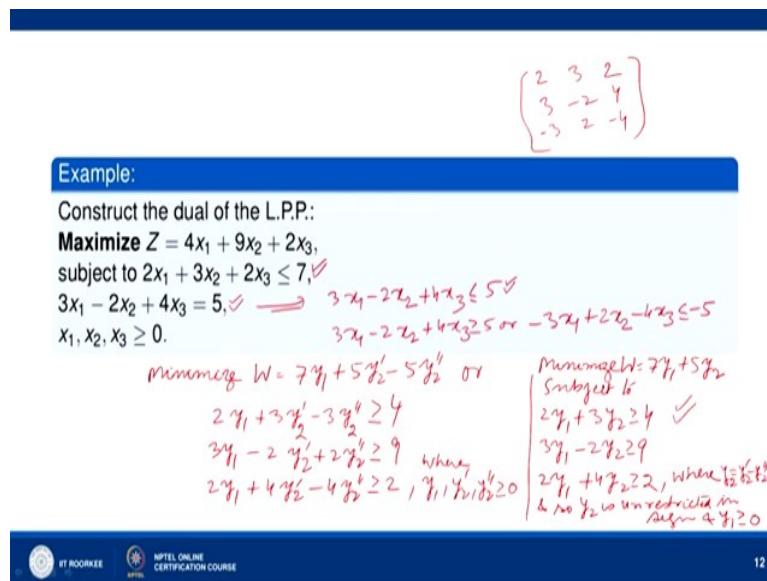 2 3 2
3 -2 4
-3 2 -4
Example:
Construct the dual of the L.P.P.:
Maximize Z = 4x₁ + 9x₂ + 2x₃,
subject to 2x₁ + 3x₂ + 2x₃ ≤ 7, ✓
3x₁ − 2x₂ + 4x₃ = 5, ✓ ⟹ 3x₁-2x₂+4x₃ ≤ 5 ✓
3x₁-2x₂+4x₃ ≥ 5 or -3x₁+2x₂-4x₃ ≤ -5
x₁, x₂, x₃ ≥ 0.
Minimize W = 7y₁ + 5y₂' - 5y₂'' or
2y₁ + 3y₂' - 3y₂'' ≥ 4
3y₁ - 2y₂' + 2y₂'' ≥ 9 where
2y₁ + 4y₂' - 4y₂'' ≥ 2, y₁, y₂', y₂'' ≥ 0
Minimize W = 7y₁ + 5y₂
Subject to
2y₁ + 3y₂ ≥ 4 ✓
3y₁ - 2y₂ ≥ 9
2y₁ + 4y₂ ≥ 2, where y₂ = y₂' - y₂''
& so y₂ is unrestricted in
sign & y₁ ≥ 0
IIT ROORKEE
NPTEL ONLINE
CERTIFICATION COURSE
12